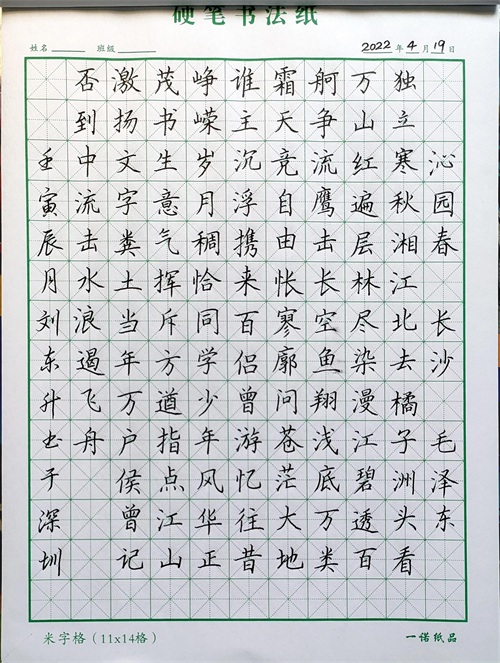 硬笔书法纸
姓名 班级 2022年4月19日
沁园春 长沙 毛泽东
独立寒秋湘江北去橘子洲头看
万山红遍层林尽染漫江碧透百
舸争流鹰击长空鱼翔浅底万类
霜天竞自由怅寥廓问苍茫大地
谁主沉浮携来百侣曾游忆往昔
峥嵘岁月稠恰同学少年风华正
茂书生意气挥斥方遒指点江山
激扬文字粪土当年万户侯曾记
否到中流击水浪遏飞舟
壬寅辰月刘东升书于深圳
米字格(11x14格) 一诺纸品